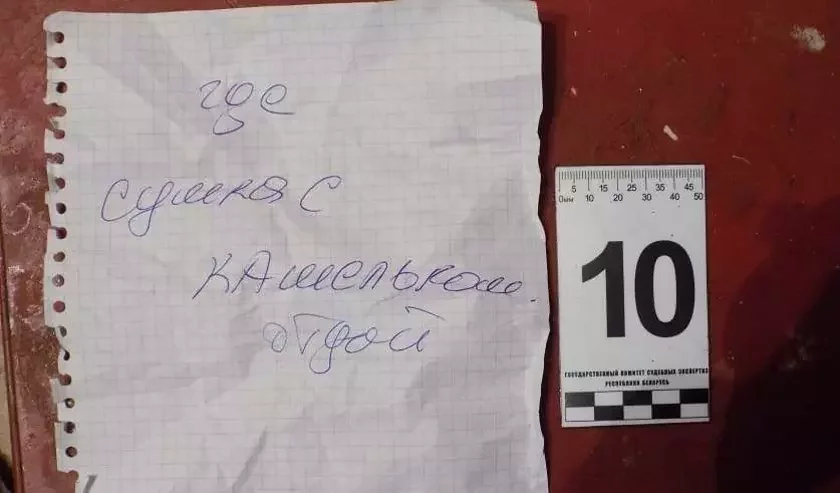 где
сумка с
кАшельком.
отдой
5 15 25 35 45
0мм 10 20 30 40 50
10
ГОСУДАРСТВЕННЫЙ КОМИТЕТ СУДЕБНЫХ ЭКСПЕРТИЗ
РЕСПУБЛИКИ БЕЛАРУСЬ